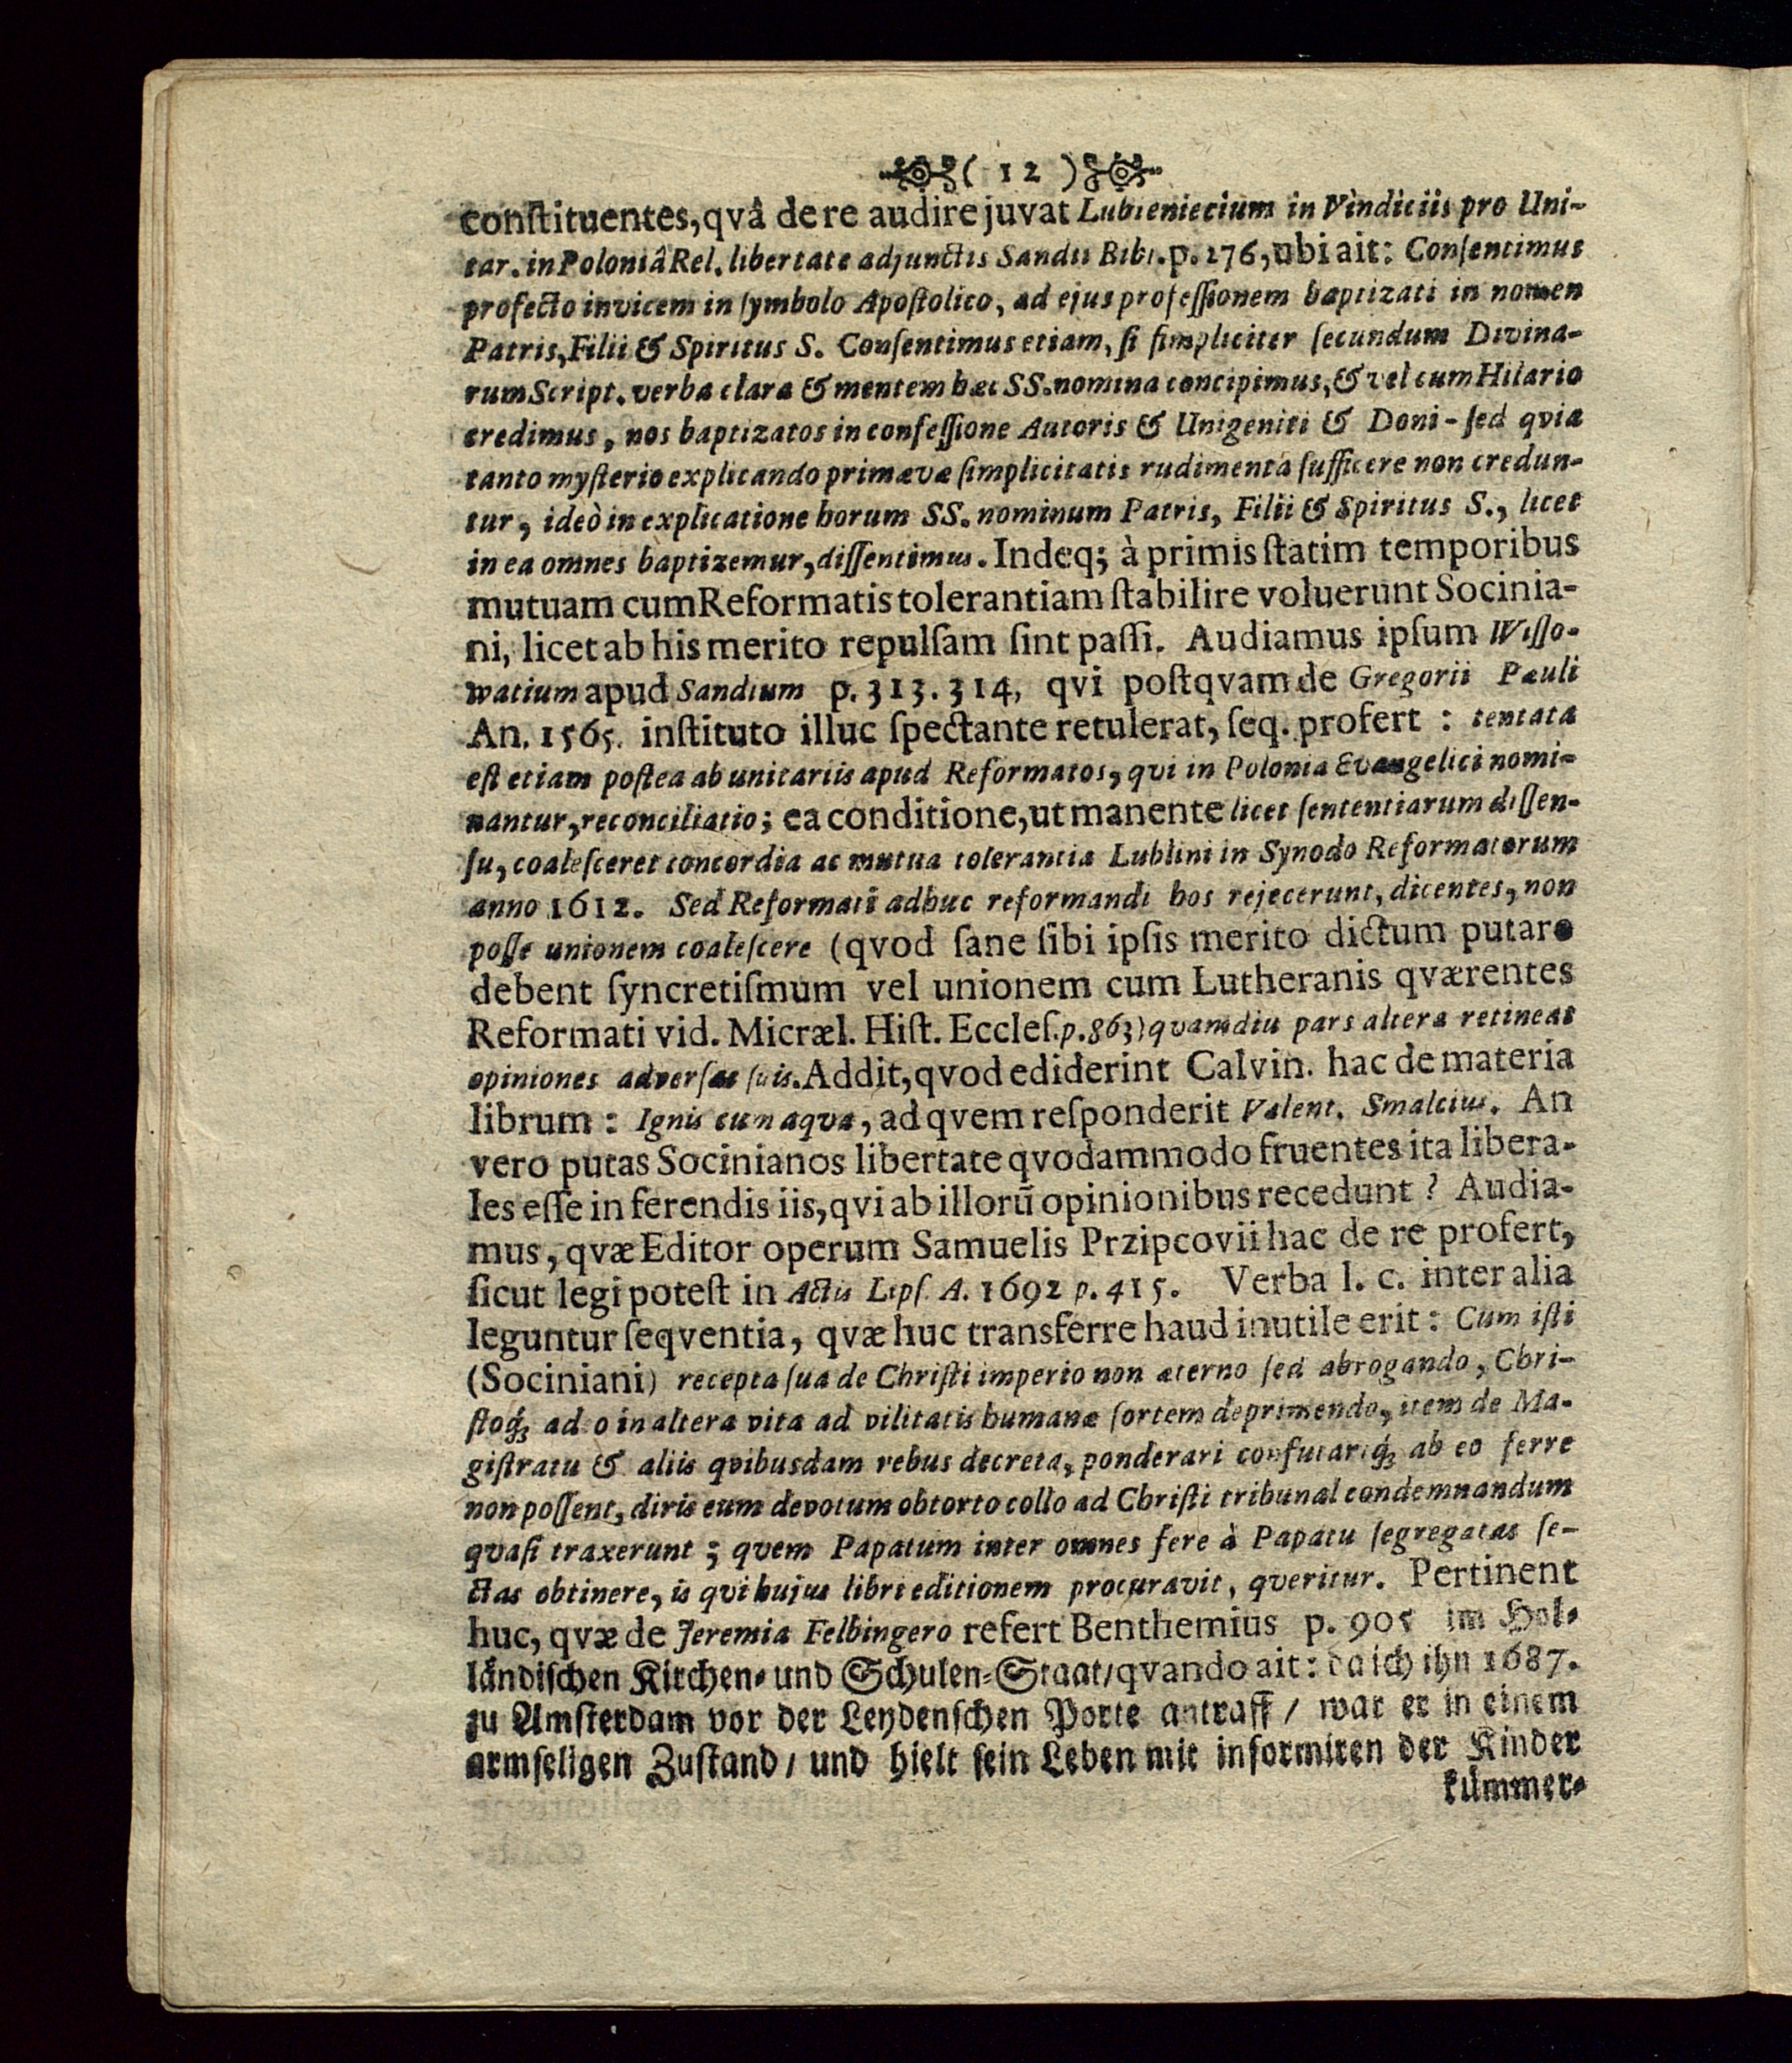 ( 12 )
conſtituentes, qvâ de re audire juvat Lubieniecium in Vindiciis pro Uni-
tar. in Poloniâ Rel. libertate adjunctis Sandii Bibl. p. 276, ubi ait: Conſentimus
profecto invicem in ſymbolo Apoſtolico, ad ejus profeſſionem baptizati in nomen
Patris, Filii & Spiritus S. Conſentimus etiam, ſi ſimpliciter ſecundum Divina-
rum Script. verba clara & mentem hæc SS. nomina concipimus, & vel cum Hilario
credimus, nos baptizatos in confeſſione Autoris & Unigeniti & Doni - ſed qvia
tanto myſterio explicando primævæ ſimplicitatis rudimenta ſufficere non credun-
tur, ideò in explicatione horum SS. nominum Patris, Filii & Spiritus S., licet
in ea omnes baptizemur, diſſentimus. Indeq; à primis ſtatim temporibus
mutuam cum Reformatis tolerantiam ſtabilire voluerunt Socinia-
ni, licet ab his merito repulſam ſint paſſi. Audiamus ipſum Wiſſo-
watium apud Sandium p. 313. 314, qvi poſtqvam de Gregorii Pauli
An. 1565. inſtituto illuc ſpectante retulerat, ſeq. profert : tentata
eſt etiam poſtea ab unitariis apud Reformatos, qvi in Polonia Evangelici nomi-
nantur, reconciliatio; ea conditione, ut manente licet ſententiarum diſſen-
ſu, coaleſceret concordia ac mutua tolerantia Lublini in Synodo Reformatorum
anno 1612. Sed Reformati adhuc reformandi hos rejecerunt, dicentes, non
poſſe unionem coaleſcere (qvod ſane ſibi ipſis merito dictum putare
debent ſyncretiſmum vel unionem cum Lutheranis qværentes
Reformati vid. Micræl. Hiſt. Eccleſ. p. 863) qvamdiu pars altera retineat
opiniones adverſas ſuis. Addit, qvod ediderint Calvin. hac de materia
librum : Ignis cum aqva, ad qvem reſponderit Valent. Smalcius. An
vero putas Socinianos libertate qvodammodo fruentes ita libera-
les eſſe in ferendis iis, qvi ab illorũ opinionibus recedunt ? Audia-
mus, qvæ Editor operum Samuelis Przipcovii hac de re profert,
ſicut legi poteſt in Actis Lipſ. A. 1692 p. 415. Verba l. c. inter alia
leguntur ſeqventia, qvæ huc transferre haud inutile erit : Cum iſti
(Sociniani) recepta ſua de Chriſti imperio non æterno ſed abrogando, Chri-
ſtoq; adeo in altera vita ad vilitatis humanæ ſortem deprimendo, item de Ma-
giſtratu & aliis qvibusdam rebus decreta, ponderari confutariq; ab eo ferre
non poſſent, diris eum devotum obtorto collo ad Chriſti tribunal condemnandum
qvaſi traxerunt ; qvem Papatum inter omnes fere à Papatu ſegregatas ſe-
ctas obtinere, is qvi hujus libri editionem procuravit, qveritur. Pertinent
huc, qvæ de Jeremia Felbingero refert Benthemius p. 905 im Hol-
ländiſchen Kirchen- und Schulen-Staat / qvando ait : da ich ihn 1687.
zu Amſterdam vor der Leydenſchen Porte antraff / war er in einem
armſeligen Zuſtand / und hielt ſein Leben mit informiren der Kinder
kümmer-